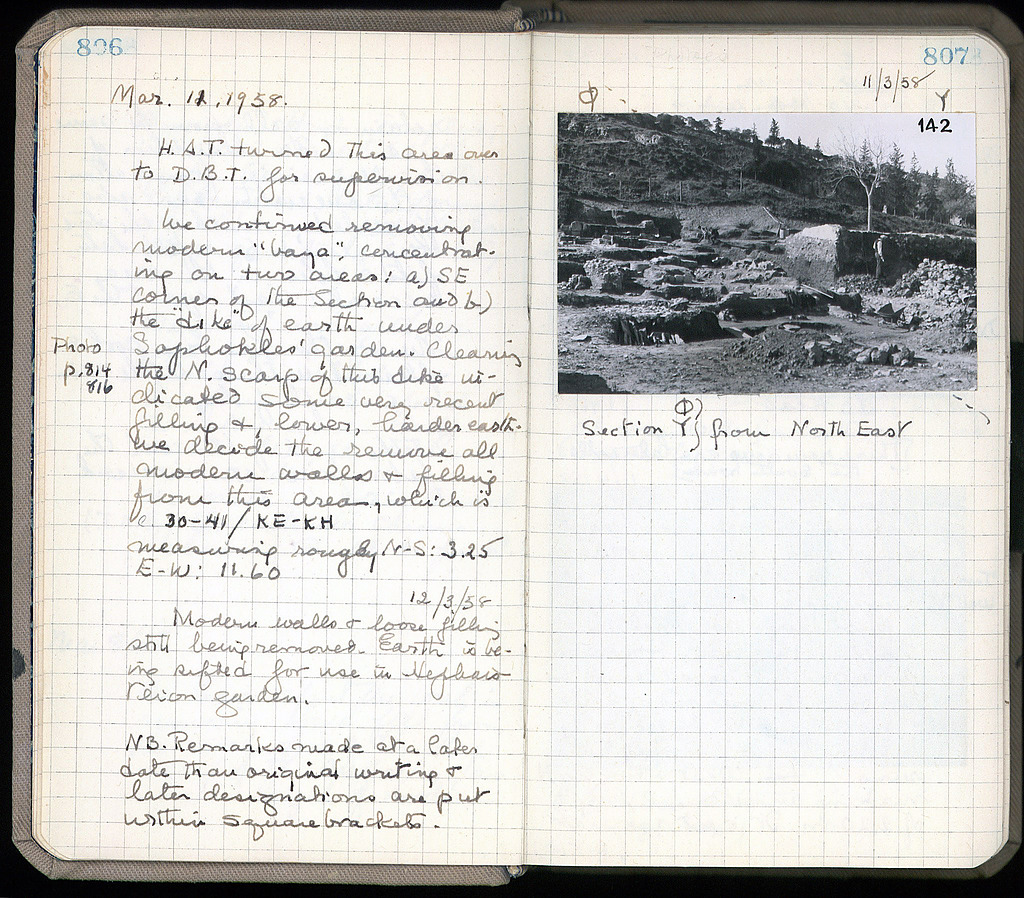 806
Mar. 11, 1958.
H.A.T. turned this area over
to D.B.T. for supervision.
We continued removing
modern "baza", concentrat-
ing on two areas: a) SE
corner of the Section and b)
the "dike" of earth under
Sophokles' garden. Clearing
Photo
p. 814
816
the N. scarp of this dike in-
dicated some very recent
filling &, lower, harder earth.
We decide the remove all
modern walls & filling
from this area, which is
c 30-41/KE-KH
measuring roughly N-S: 3.25
E-W: 11.60
12/3/58
Modern walls & loose filling
still being removed. Earth is be-
ing sifted for use in Hephais-
teion garden.
NB. Remarks made at a later
date than original writing &
later designations are put
within square brackets.
807
11/3/58
Φ
Y
142
Section Φ
Y } from North East